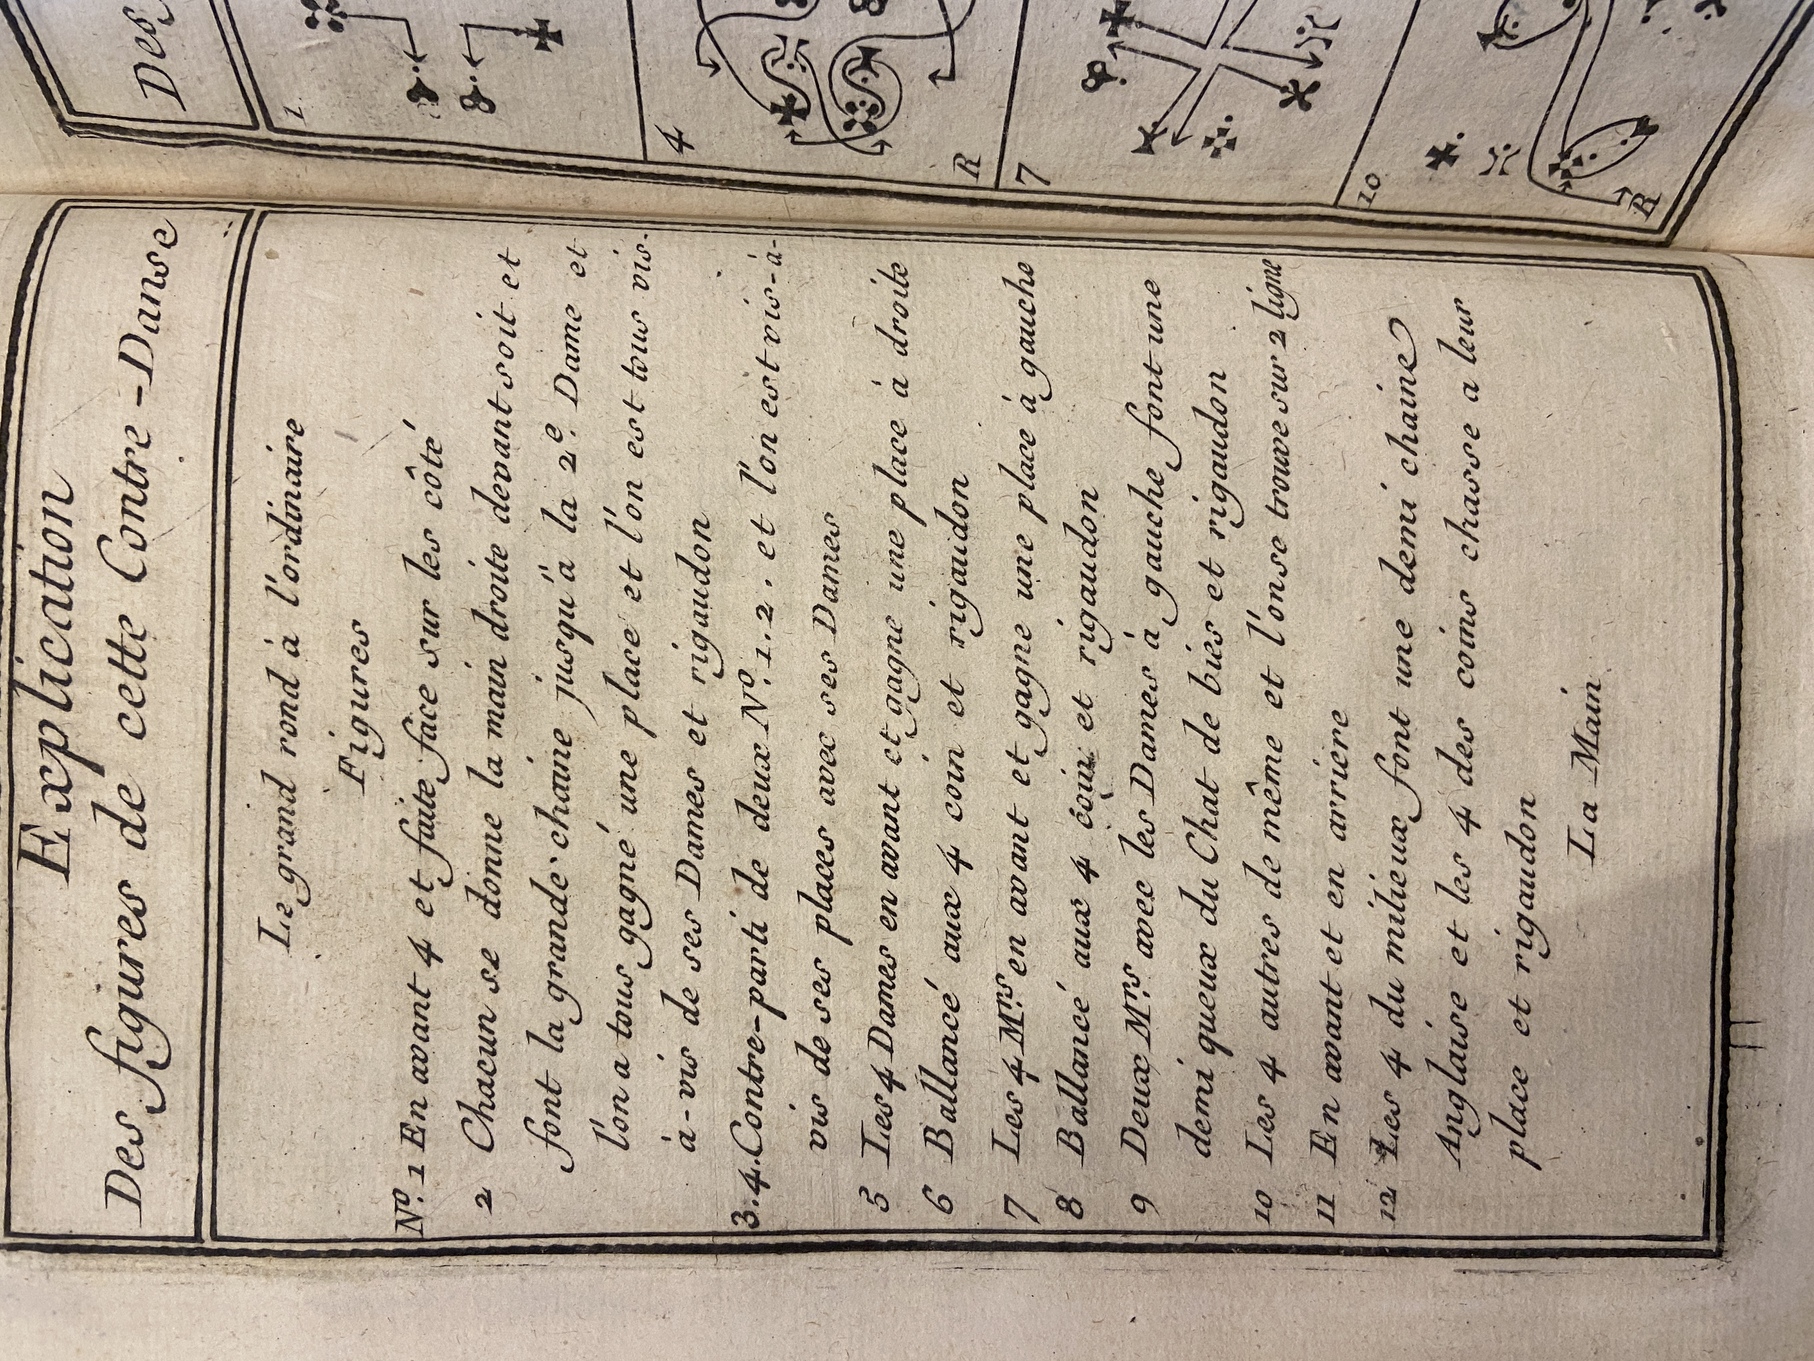 Explication
Des figures de cette Contre-Danse
Le grand rond à l'ordinaire
Figures
No. 1 En avant 4 et faite face sur les côté
2 Chacun se donne la main droite devant soit et
font la grande chaine jusqu'à la 2e. Dame et
l'on a tous gagné une place et l'on est tous vis-
à-vis de ses Dames et rigaudon
3.4. Contre-parti de deux No. 1.2. et l'on est vis-à-
vis de ses places avec ses Dames
5 Les 4 Dames en avant et gagne une place à droite
6 Ballancé aux 4 coin et rigaudon
7 Les 4 Mrs. en avant et gagne une place à gauche
8 Ballancé aux 4 coin et rigaudon
9 Deux Mrs. avec les Dames à gauche font une
demi queux du Chat de biès et rigaudon
10 Les 4 autres de même et l'on se trouve sur 2 ligne
11 En avant et en arriere
12 Les 4 du milieux font une demi chaine
Anglaise et les 4 des coins chasse a leur
place et rigaudon
La Main
Des
1
4
R
7
10
R